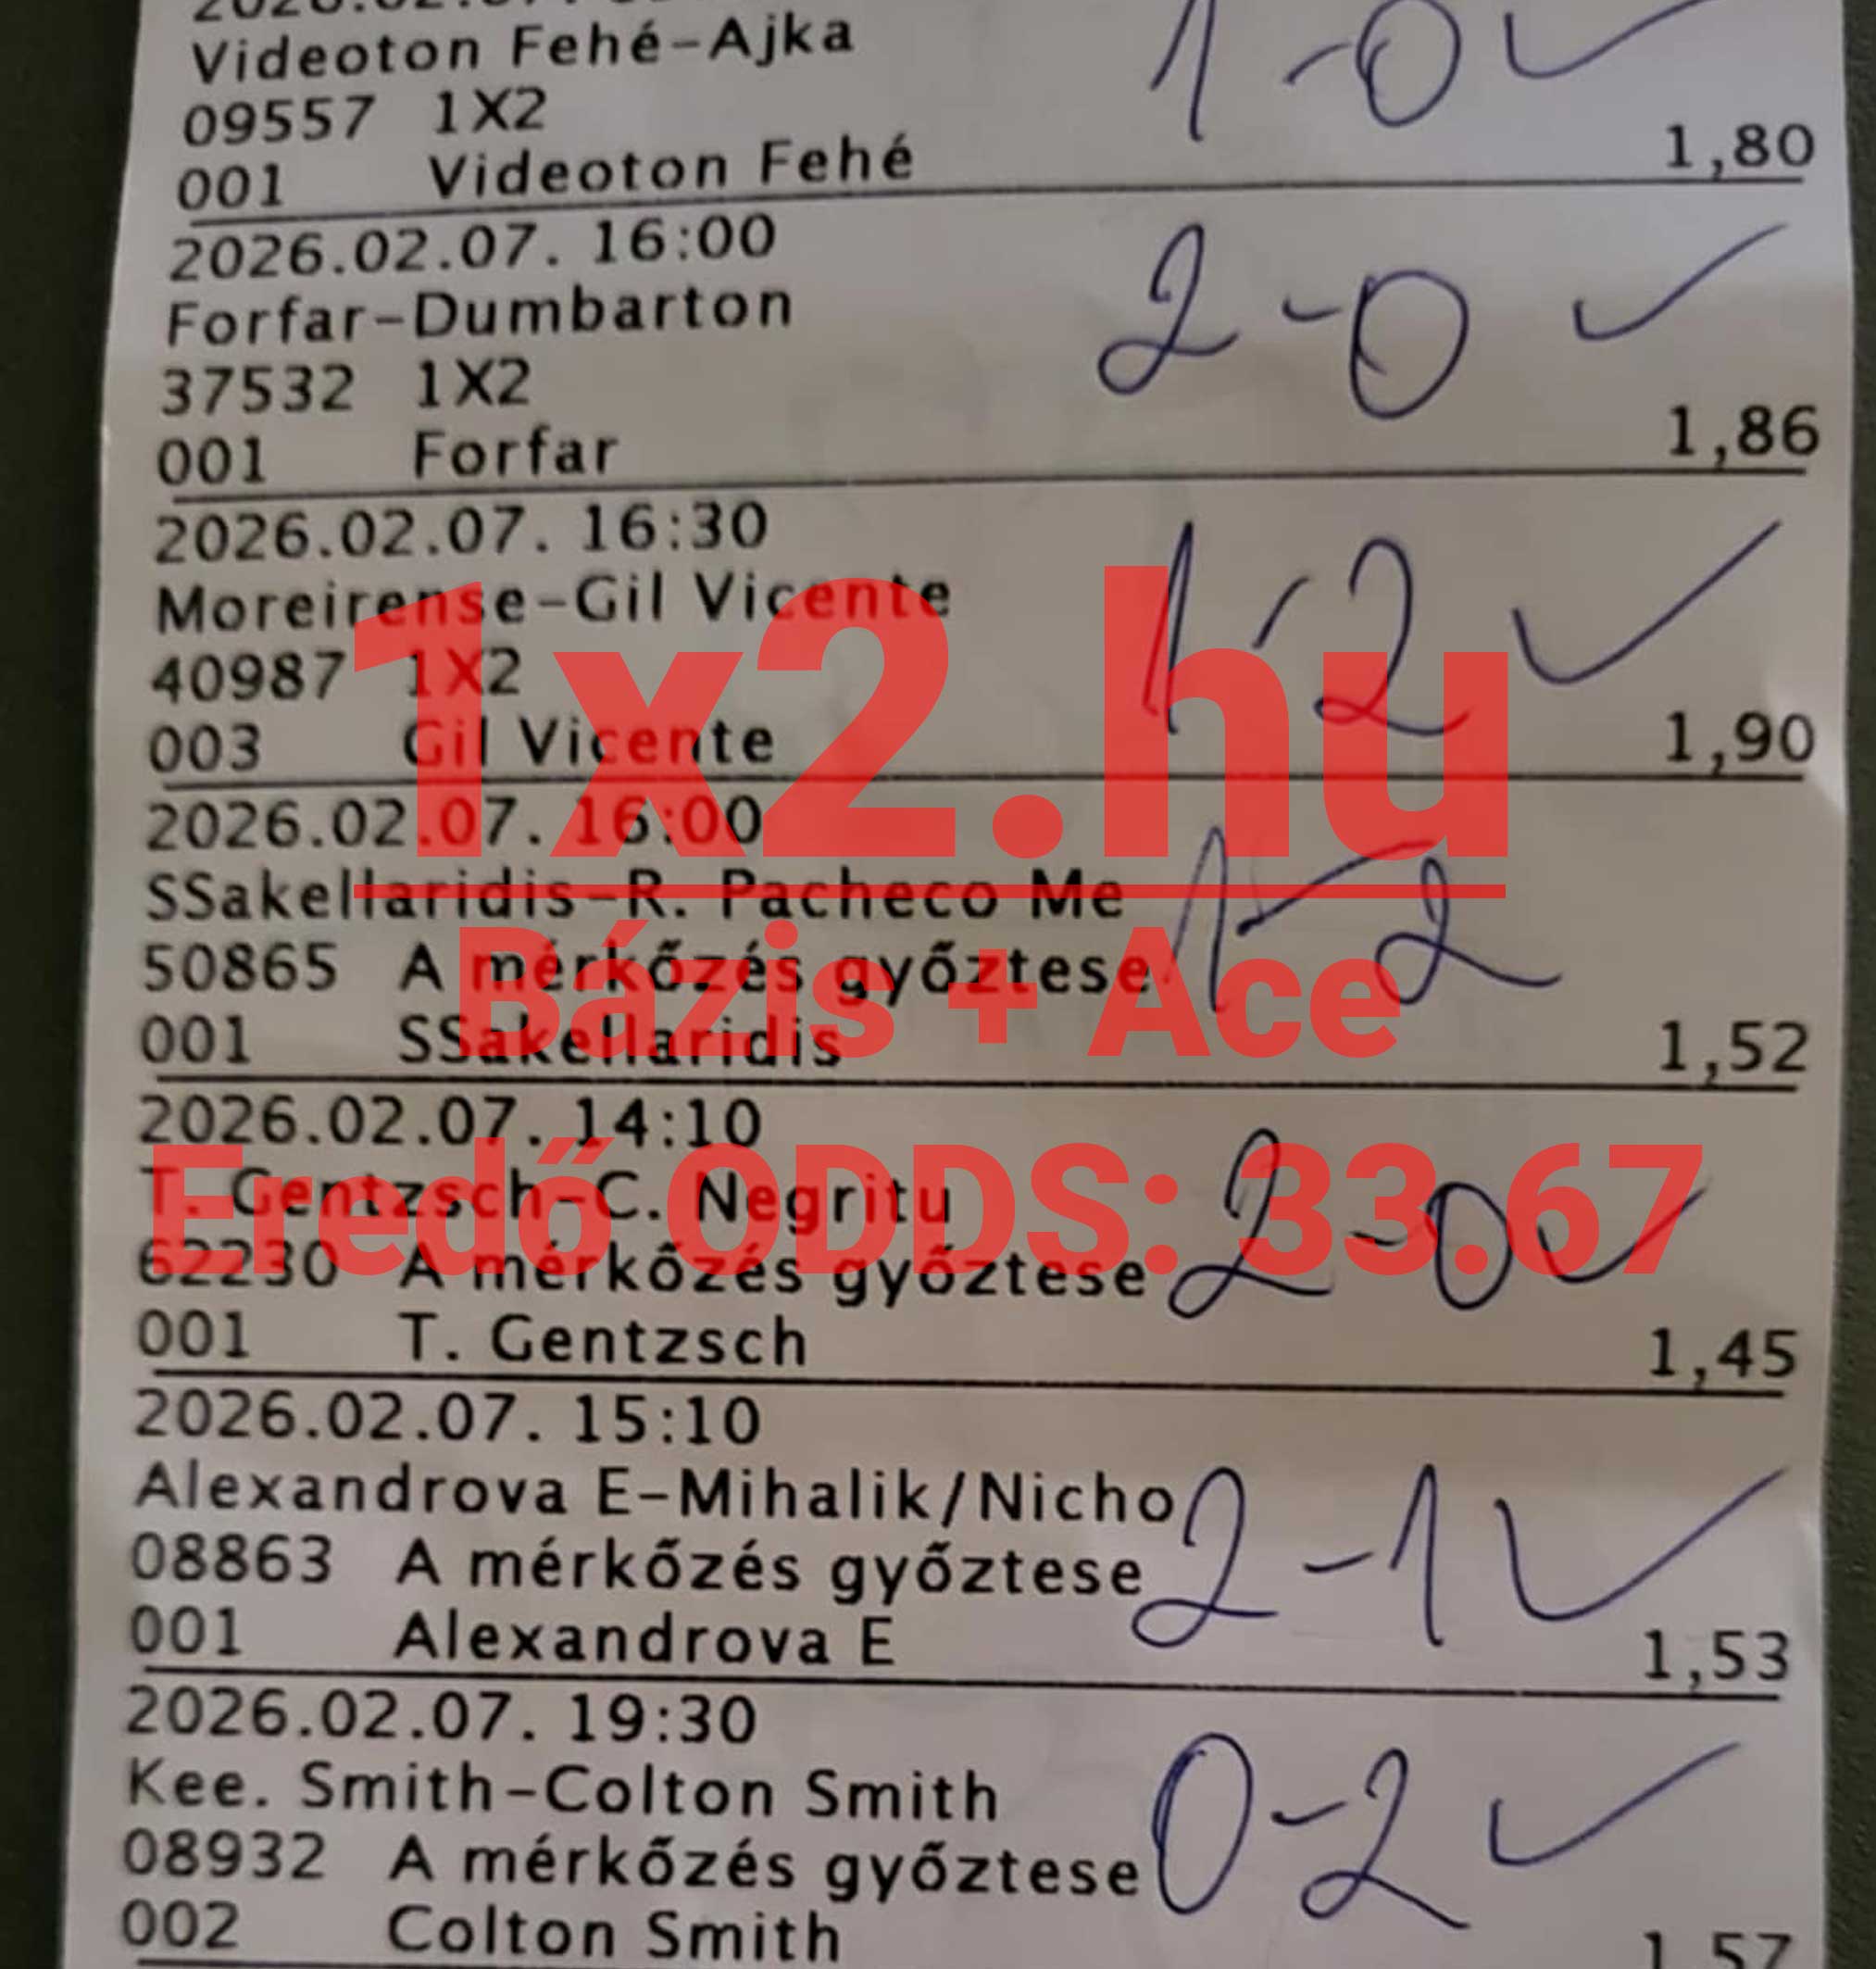 Videoton Fehé-Ajka
1-0 ✓
09557 1X2
001 Videoton Fehé 1,80
2026.02.07. 16:00
Forfar-Dumbarton
2-0 ✓
37532 1X2
001 Forfar 1,86
2026.02.07. 16:30
Moreirense-Gil Vicente
1-2 ✓
40987 1X2
003 Gil Vicente 1,90
1x2.hu
2026.02.07. 16:00
SSakellaridis-R. Pacheco Me
1-2
50865 A mérkőzés győztese
001 SSakellaridis 1,52
Bázis + Ace
2026.02.07. 14:10
T. Gentzsch-C. Negritu
2-0 ✓
62230 A mérkőzés győztese
001 T. Gentzsch 1,45
Eredő ODDS: 33.67
2026.02.07. 15:10
Alexandrova E-Mihalik/Nicho
2-1 ✓
08863 A mérkőzés győztese
001 Alexandrova E 1,53
2026.02.07. 19:30
Kee. Smith-Colton Smith
0-2 ✓
08932 A mérkőzés győztese
002 Colton Smith 1,57